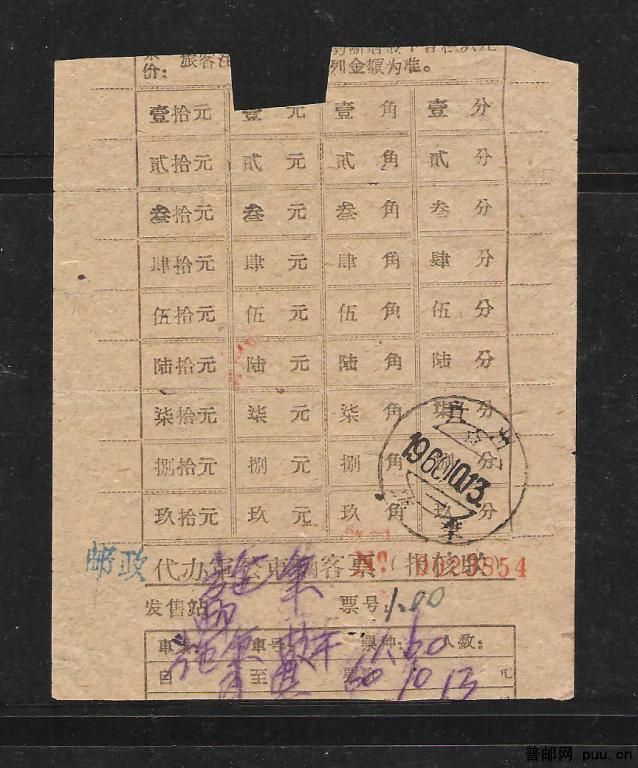 价：旅客
列金额为准。
壹拾元 壹 元 壹 角 壹 分
贰拾元 贰 元 贰 角 贰 分
叁拾元 叁 元 叁 角 叁 分
肆拾元 肆 元 肆 角 肆 分
伍拾元 伍 元 伍 角 伍 分
陆拾元 陆 元 陆 角 陆 分
柒拾元 柒 元 柒 角 柒 分
捌拾元 捌 元 捌 角 捌 分
玖拾元 玖 元 玖 角 玖 分
1960.10.13
邮政 代办 客票 报核联
No. 0029854
发售站 票号 1.00
車 車号 票种： 人数：
自 至 元
60 10 13
普邮网 puu.cn